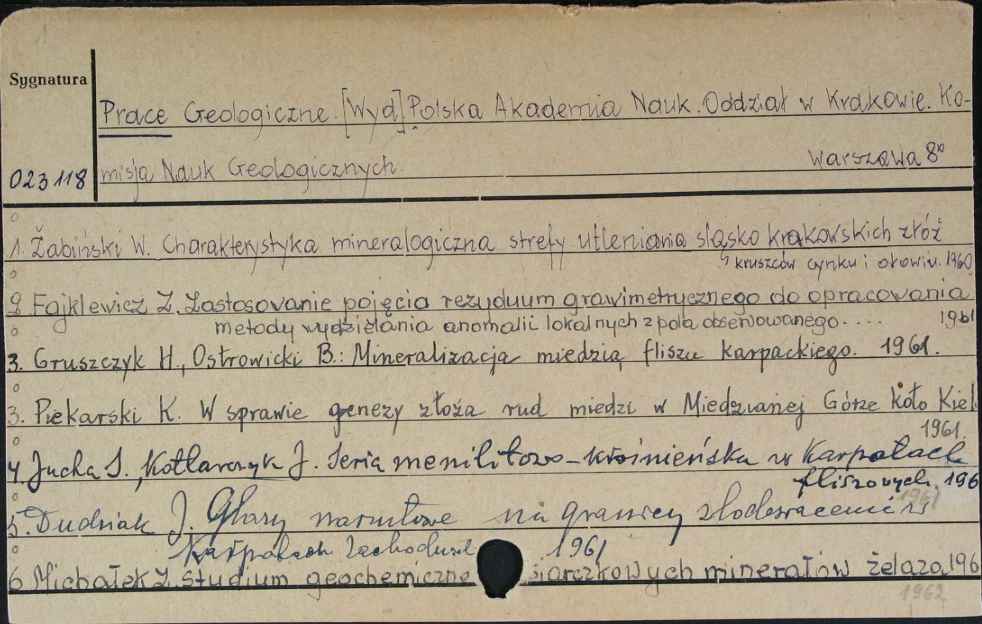 Sygnatura
Prace Geologiczne. [Wyd] Polska Akademia Nauk. Oddział w Krakowie. Ko-
misja Nauk Geologicznych.
Warszawa 8°
023118
1. Żabiński W. Charakterystyka mineralogiczna strefy utleniania śląsko krakowskich złóż
kruszców cynku i ołowiu. 1960
2. Fajklewicz Z. Zastosowanie pojęcia rezyduum grawimetrycznego do opracowania
metody wydzielania anomalii lokalnych z pola obserwowanego.... 1961
3. Gruszczyk H., Ostrowicki B.: Mineralizacja miedzią fliszu karpackiego. 1961.
3. Piekarski K. W sprawie genezy złoża rud miedzi w Miedzianej Górze koło Kiel.
1961.
4. Jucha S., Kotlarczyk J. Seria menilitowo-krośnieńska w Karpatach
fliszowych. 196
1961
5. Dudziak J. Głazy narzutowe na granicy zlodowacenia w
Karpatach Zachodnich 1961
6. Michałek Z. Studium geochemiczne siarczkowych minerałów żelaza. 196
1962